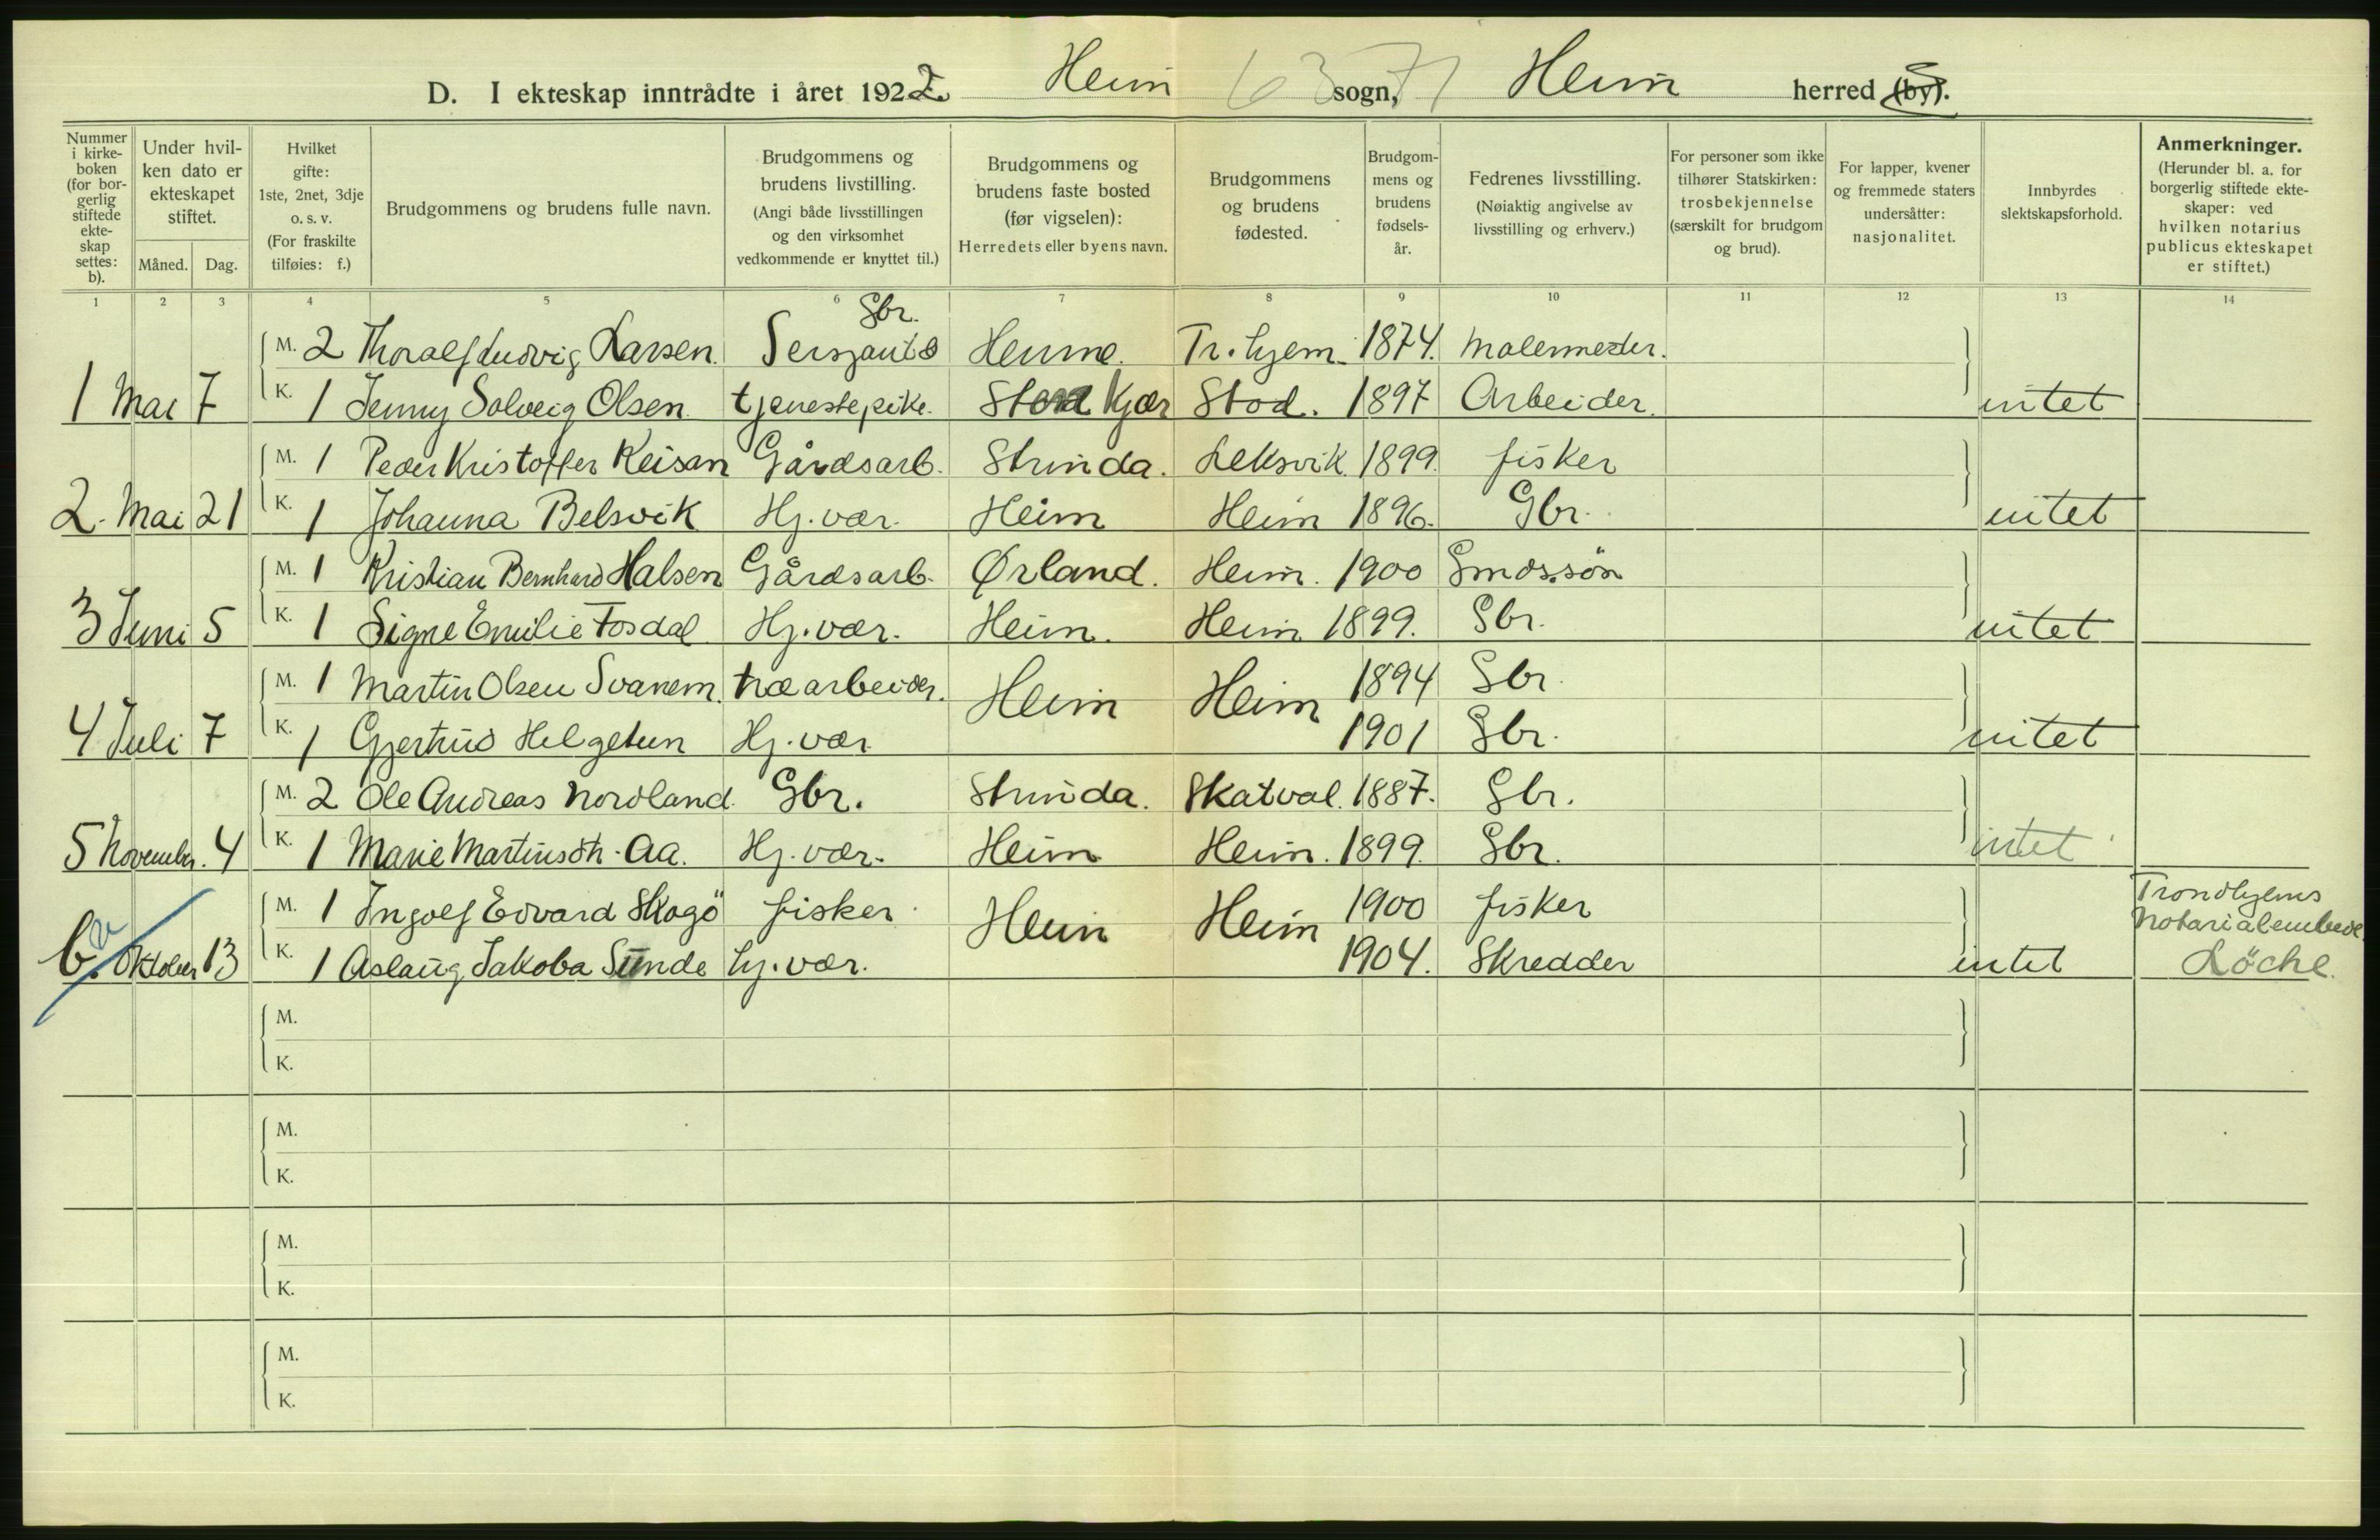 D. I ekteskap inntrådte i året 1922. Heim sogn, Heim herred (by).
63 71
Nummer i kirkeboken (for borgerlig stiftede ekteskap settes: b).
Under hvilken dato er ekteskapet stiftet.
Måned. Dag.
Hvilket gifte: 1ste, 2net, 3dje o. s. v. (For fraskilte tilføies: f.)
Brudgommens og brudens fulle navn.
Brudgommens og brudens livstilling. (Angi både livsstillingen og den virksomhet vedkommende er knyttet til.)
Brudgommens og brudens faste bosted (før vigselen): Herredets eller byens navn.
Brudgommens og brudens fødested.
Brudgommens og brudens fødselsår.
Fedrenes livsstilling. (Nøiaktig angivelse av livsstilling og erhverv.)
For personer som ikke tilhører Statskirken: trosbekjennelse (særskilt for brudgom og brud).
For lapper, kvener og fremmede staters undersåtter: nasjonalitet.
Innbyrdes slektskapsforhold.
Anmerkninger. (Herunder bl. a. for borgerlig stiftede ekteskaper: ved hvilken notarius publicus ekteskapet er stiftet.)
1 2 3 4 5 6 7 8 9 10 11 12 13 14
Gbr.
M. 2 Thoralf Ludvig Larsen. Sersjant Hemne. Tr.hjem. 1874. Malermester.
1 Mai 7 K. 1 Jenny Solveig Olsen. tjenestepike. Stenkjær Stod. 1897 Arbeider. intet
M. 1 Peder Kristoffer Reisan Gårdsarb. Strinda. Leksvik 1899. fisker
2. Mai 21 K. 1 Johanna Belsvik Hj.vær. Heim Heim 1896. Gbr. intet
M. 1 Kristian Bernhard Halsen Gårdsarb. Ørland. Heim. 1900 Gmds.søn
3 Juni 5 K. 1 Signe Emilie Fosdal Hj.vær. Heim. Heim 1899. Gbr. intet
M. 1 Martin Olsen Svanem. træarbeider. Heim Heim 1894 Gbr.
4 Juli 7 K. 1 Gjertrud Helgetun Hj.vær 1901 Gbr. intet
M. 2 Ole Andreas Nordland. Gbr. Strinda. Skatval. 1887. Gbr.
5 November. 4 K. 1 Marie Martinsdtr. Aa. Hj.vær. Heim Heim. 1899. Gbr. intet
M. 1 Ingolf Edvard Skogö fisker. Heim Heim 1900 fisker Trondhjems Notarialembede
6. Oktober 13 K. 1 Aslaug Jakoba Sunde hj.vær. 1904. Skredder intet Löche.
M.
K.
M.
K.
M.
K.
M.
K.